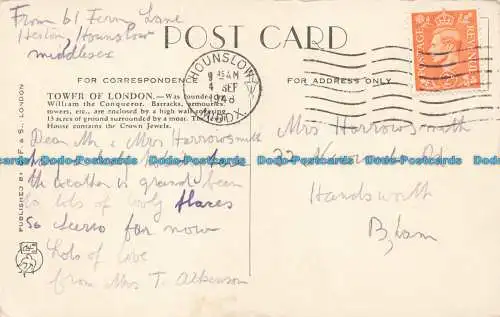 From 61 Fern Lane
Heston, Hounslow
Middlesex
POST CARD
FOR CORRESPONDENCE
FOR ADDRESS ONLY
HOUNSLOW
45 AM
4 SEP
1948
MIDDX.
POSTAGE
REVENUE
TOWER OF LONDON.—Was founded by
William the Conqueror. Barracks, armouries,
towers, etc., are enclosed by a high wall
13 acres of ground surrounded by a moat. The
House contains the Crown Jewels.
PUBLISHED BY
& S., LONDON
Dear Mr & Mrs Harrowsmith
the weather is grand been
to lots of lovely places
so cheerio for now
Lots of love
from Mrs T. Atkinson
Mrs Harrowsmith
Rd
Handsworth
B,ham
Dodo-Postcards Dodo-Postcards Dodo-Postcards Dodo-Postcards